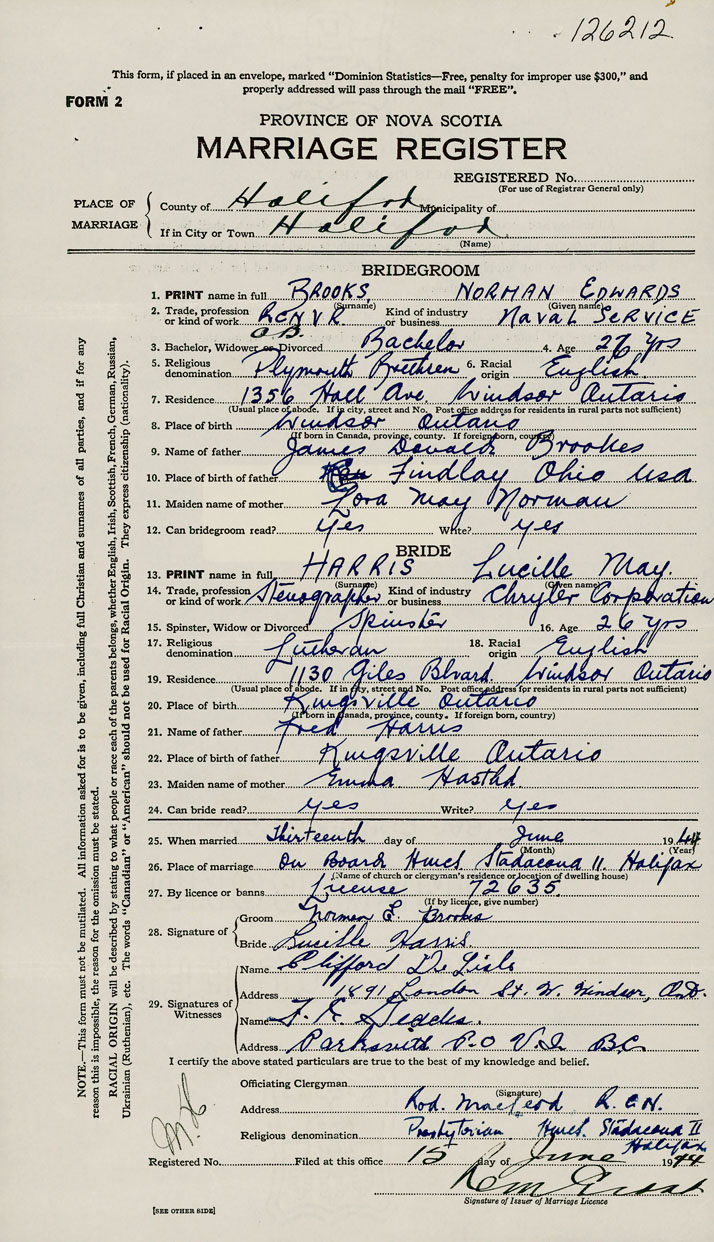 126212
This form, if placed in an envelope, marked "Dominion Statistics—Free, penalty for improper use $300," and
properly addressed will pass through the mail "FREE".
FORM 2
PROVINCE OF NOVA SCOTIA
MARRIAGE REGISTER
REGISTERED No.
(For use of Registrar General only)
PLACE OF MARRIAGE
County of Halifax Municipality of
If in City or Town Halifax
(Name)
BRIDEGROOM
1. PRINT name in full BROOKS, NORMAN EDWARDS
(Surname) (Given name)
2. Trade, profession or kind of work RCNVR O.S. Kind of industry or business Naval Service
3. Bachelor, Widower or Divorced Bachelor 4. Age 26 yrs
5. Religious denomination Plymouth Brethren 6. Racial origin English
7. Residence 1356 Hall Ave. Windsor Ontario
(Usual place of abode. If in city, street and No. Post office address for residents in rural parts not sufficient)
8. Place of birth Windsor Ontario
(If born in Canada, province, county. If foreign born, country)
9. Name of father James Donald Brookes
10. Place of birth of father Findlay Ohio USA
11. Maiden name of mother Lora May Norman
12. Can bridegroom read? Yes Write? yes
BRIDE
13. PRINT name in full HARRIS Lucille May.
(Surname) (Given name)
14. Trade, profession or kind of work Stenographer Kind of industry or business Chryler Corporation
15. Spinster, Widow or Divorced Spinster 16. Age 26 yrs
17. Religious denomination Lutheran 18. Racial origin English
19. Residence 1130 Giles Blvard. Windsor Ontario
(Usual place of abode. If in city, street and No. Post office address for residents in rural parts not sufficient)
20. Place of birth Kingsville Ontario
(If born in Canada, province, county. If foreign born, country)
21. Name of father Fred Harris
22. Place of birth of father Kingsville Ontario
23. Maiden name of mother Emma
24. Can bride read? yes Write? yes
25. When married Thirteenth day of June 1944
(Month) (Year)
26. Place of marriage On Board Hmcs Stadacona II. Halifax
(Name of church or clergyman's residence or location of dwelling house)
27. By licence or banns License 72635
(If by licence, give number)
28. Signature of
Groom Norman E. Brooks
Bride Lucille Harris
29. Signatures of Witnesses
Name Clifford De Lisle
Address 1891 London St. W. Windsor, Ont.
Name
Address Parksville P.O V.I. B.C.
I certify the above stated particulars are true to the best of my knowledge and belief.
Officiating Clergyman
(Signature)
Address Rod. MacLeod R.C.N.
Religious denomination Presbyterian Hmcs. Stadacona II
Halifax
Registered No. Filed at this office 15 day of June 1944
Signature of Issuer of Marriage Licence
[SEE OTHER SIDE]
NOTE.—This form must not be mutilated. All information asked for is to be given, including full Christian and surnames of all parties, and if for any
reason this is impossible, the reason for the omission must be stated.
RACIAL ORIGIN will be described by stating to what people or race each of the parents belongs, whether English, Irish, Scottish, French, German, Russian,
Ukrainian (Ruthenian), etc. The words "Canadian" or "American" should not be used for Racial Origin. They express citizenship (nationality).